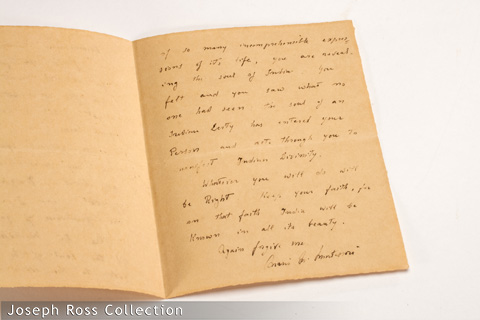 of so many incomprehensible expres
sions of its life, you are reveal-
ing the soul of India. You
felt and you saw what no
one had seen the soul of an
Indian Deity has entered your
Person and acts through you to
manifest Indian Divinity.
Whatever you will do will
be Right. Keep your faith, for
on that faith India will be
Known in all its beauty.
Again forgive me.
Joseph Ross Collection